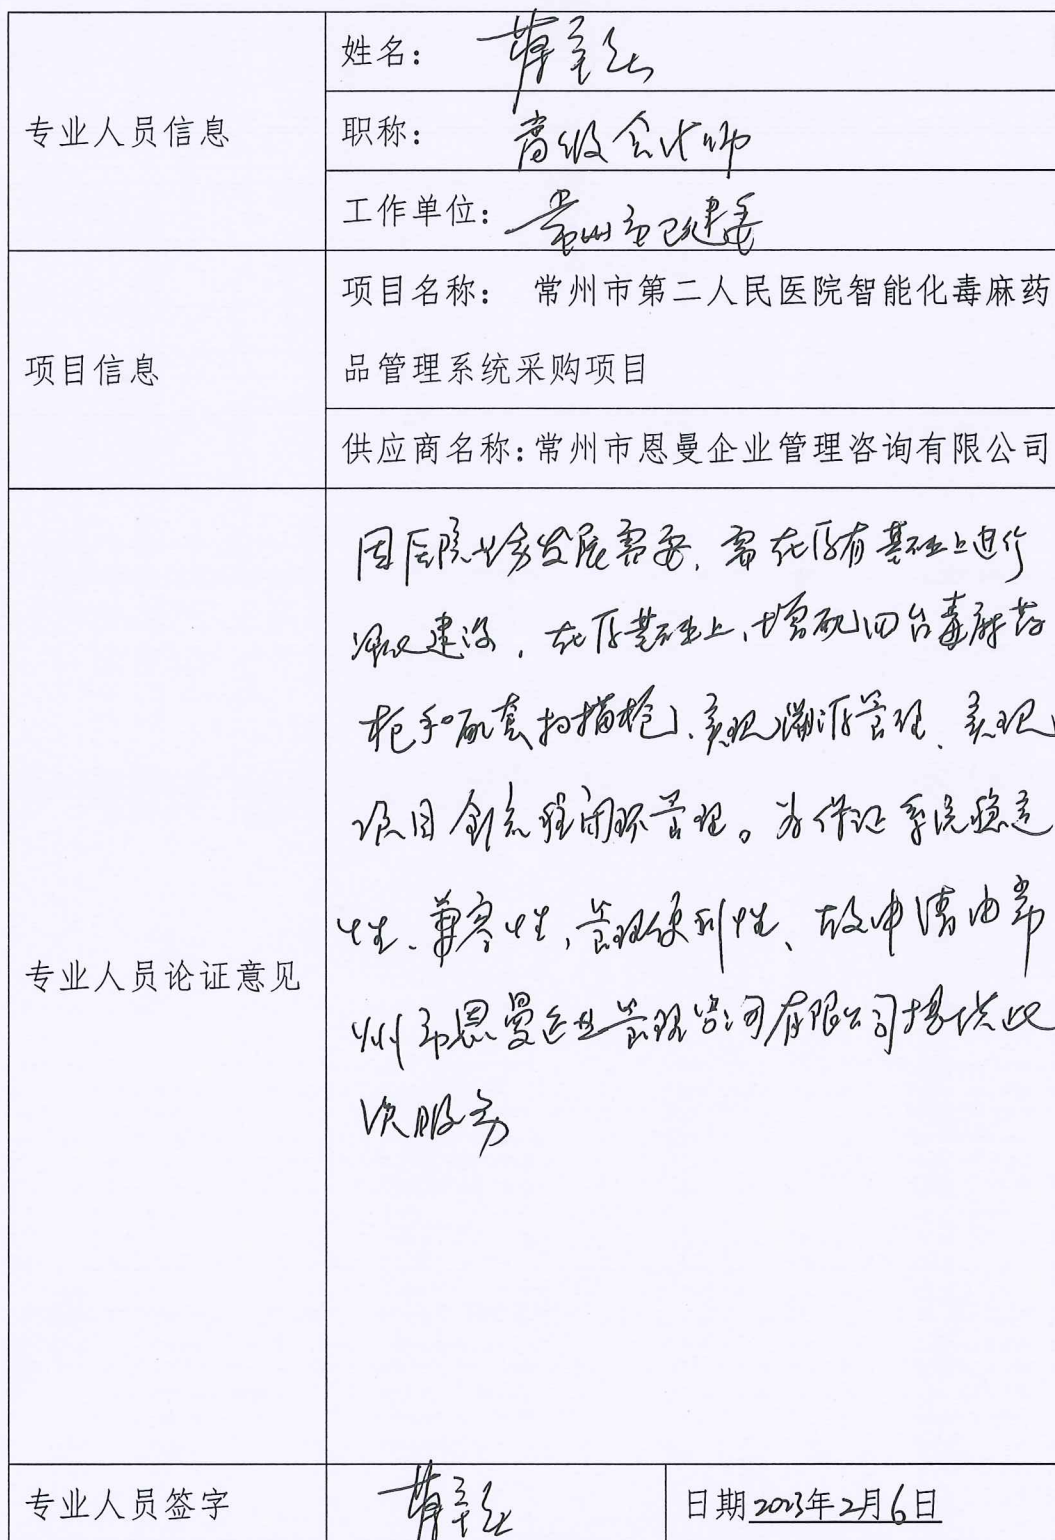 专业人员信息
姓名：
职称： 高级会计师
工作单位： 常州市卫健委
项目信息
项目名称： 常州市第二人民医院智能化毒麻药
品管理系统采购项目
供应商名称：常州市恩曼企业管理咨询有限公司
专业人员论证意见
因医院业务发展需要，需在原有基础上进行
建设，在原基础上，增配四台毒麻药
配套扫描枪、实现溯源管理、实现
项目全流程闭环管理。为保证系统稳定
性、兼容性，管理便利性、故申请由常
州市恩曼企业管理咨询有限公司提供此
次服务
专业人员签字
日期 2023年2月6日